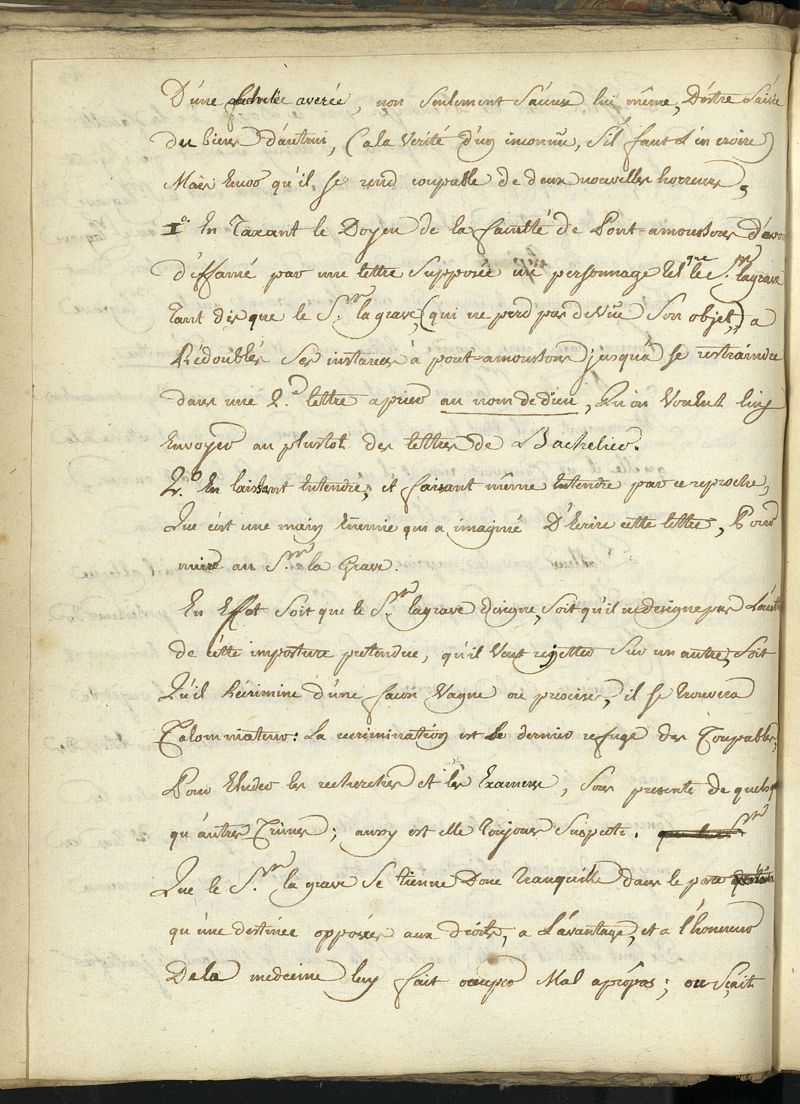 D'une averée, non seulement s'accuse lui même, D'être saisie
du biens d'autrui, (a la verité d'un inconnu, s'il faut l'en croire)
Mais Encor qu'il se rend coupable de deux nouvelles horreurs,
1.° En Taxant le Doyen de la faculté de Pont-amousson d'avoir
diffamé par une lettre supposée un personnage tel q.ue le S.r lagrave
tant dis que le S.r la grave, (qui ne perd pas de vuë son objet,) a
Rédoublés ses instances à pont-amousson jusqu'à se restraindre
dans une 2.e lettre a prier au nom de dieu, Qu'on Voulut luy
Envoyer au plustot des lettres de Bachelier.
2.° En laissant entendre, et faisant même Entendre par ce reproche,
Que c'est une main Ennemie qui a imaginé D'Ecrire cette lettre, Pour
nuire au S.r la Grave.
En Effet soit que le S.r lagrave designe, soit qu'il ne designe pas L'aut
de cette imposture pretendue, qu'il veut rejetter sur un autre, soit
Qu'il Récrimine d'une facon Vague ou precise, il se trouvera
Calomniateur: La recrimination est le dernier refuge des Coupables,
Pour Eluder les recherches et les Examens, sous pretexte de quelq
qu'autres Crimes; aussy est elle toujours suspecte.
Que le S.r la grave se tienne Donc tranquille dans le
qu'une destinée opposée aux droits, a L'avantage, et a l'honneur
De la medecine luy fait occuper Mal apropos; on sçait